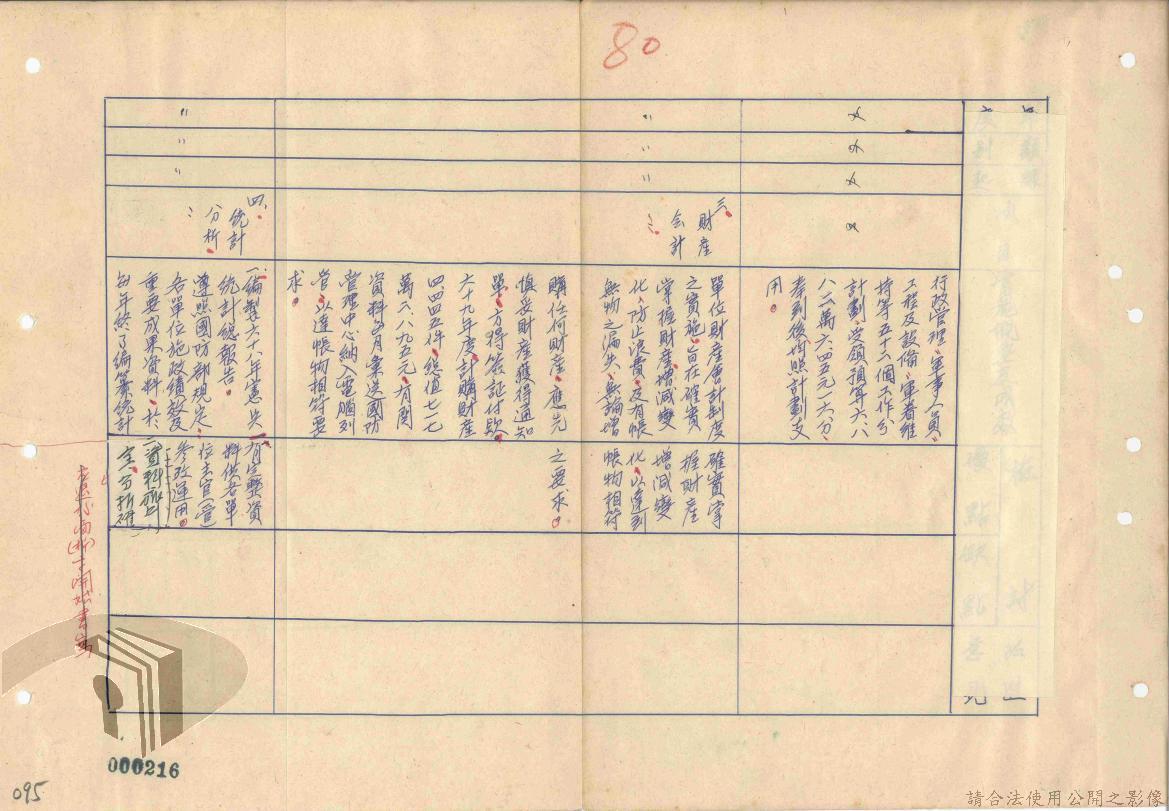 80
行政管理、軍事人員、
工程及設備、軍眷維
持等五十六個工作分
計劃、受領預算六、八
八六萬六、四五元一六分、
奉到後均照計劃支
用。
三、財產
会計
單位財產會計制度
之實施、旨在確實
掌握財產增減變
化、防止浪費、及有帳
無物之漏失、無論增
購任何財產、應先
恆妥財產獲得通知
單、方得簽証付款、
六十九年度計購財產
四四四五件、總值七一七
萬六、八九五元、有関
資料每月彙送國防
管理中心納入電腦列
管、以達帳物相符要
求。
確實掌
握財產
增減變
化、以達到
帳物相符
之要求。
四、統計
分析。
一、編製六十八年憲兵
統計總報告。
遵照國防部規定、
各單位施政績效及
重要成果資料、於
每年終了編纂統計
一、有完整資
料供各單
位主官(管)
參改運用。
二、資料齊
全、分析確
000216
095
請合法使用公開之影像